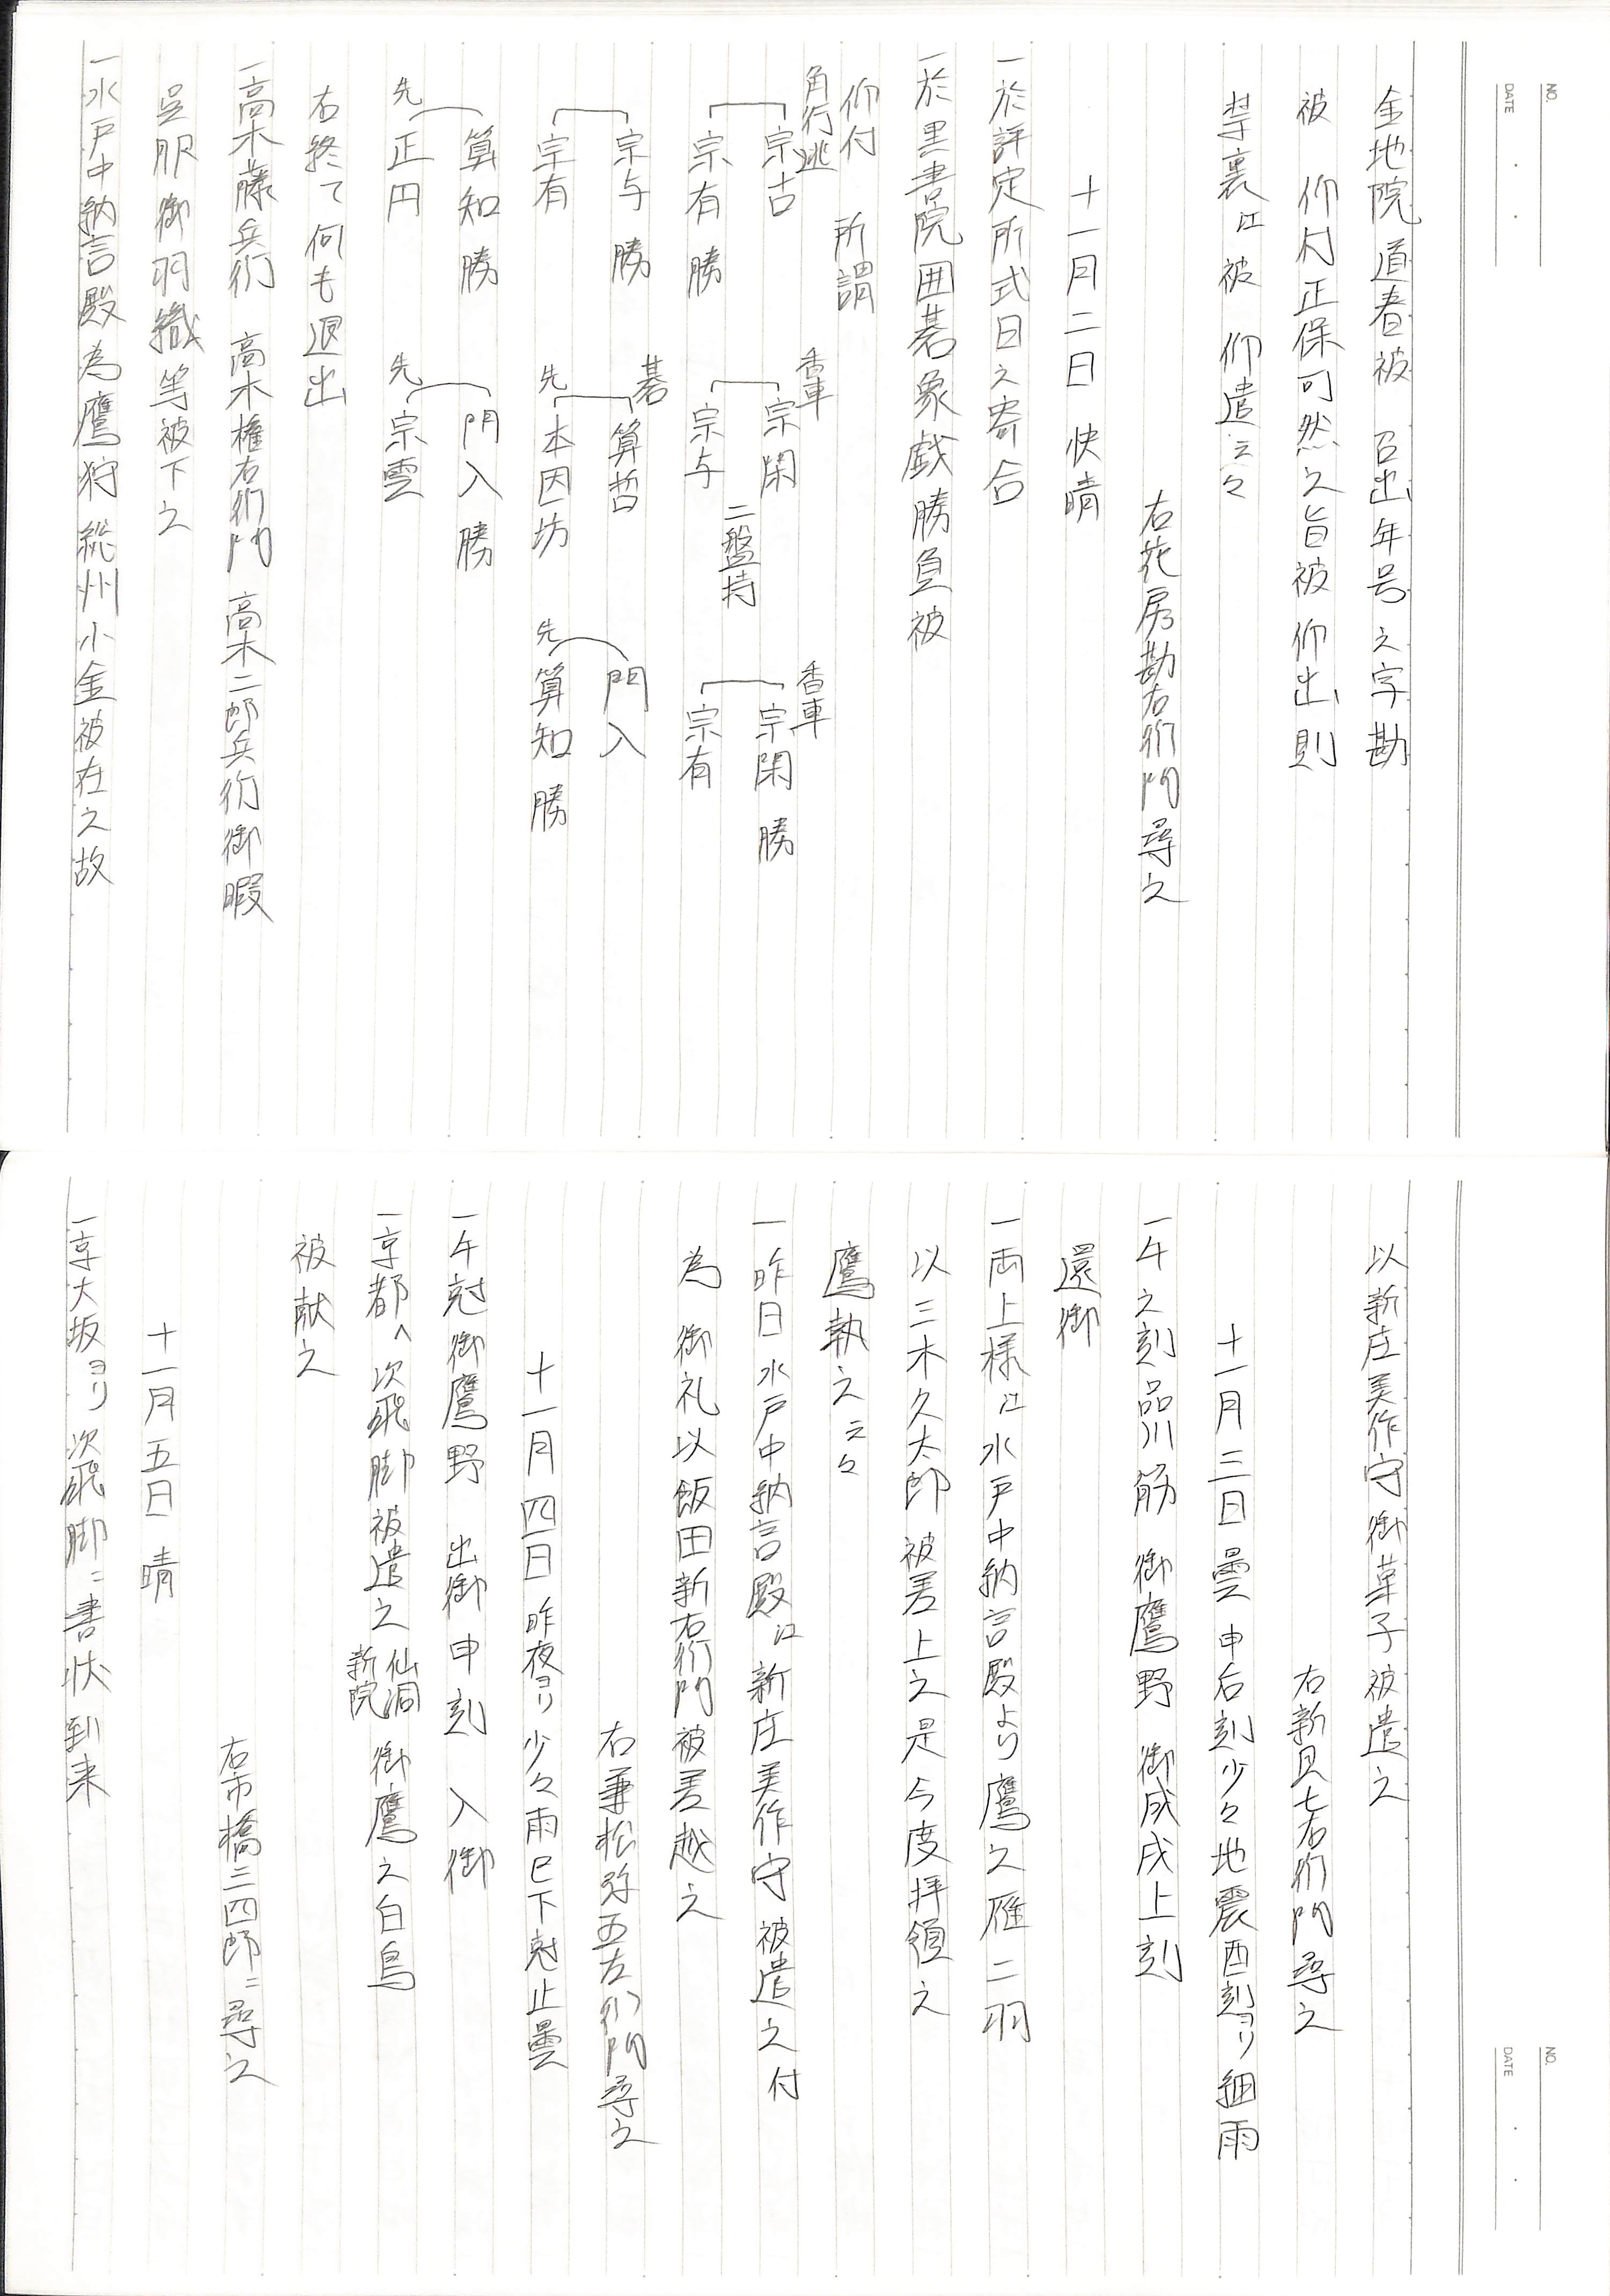 NO.
DATE
金地院道春被 召出年号之字勘
被 仰付正保可然之旨被 仰出則
禁裏江被 仰遣云々
右花房勘右衛門尋之
十一月二日 快晴
一於評定所式日之寄合
一於黒書院囲碁象戯勝負被
仰付 所謂
角行逃 香車 香車
宗古 宗閑 宗閑 勝
宗有 勝 宗与 二盤持 宗有
碁
宗与 勝 算哲 門入
宗有 先 本因坊 先 算知 勝
算知 勝 門入 勝
先 正円 先 宗雲
右終て何も退出
一高木藤兵衛 高木権右衛門 高木二郎兵衛御暇
呉服御羽織等被下之
一水戸中納言殿為鷹狩総州小金被在之故
NO.
DATE
以新庄美作守御菓子被遣之
右新見七右衛門尋之
十一月三日曇申后刻少々地震酉刻ヨリ細雨
一午之刻品川筋御鷹野御成戌上刻
還御
一両上様江水戸中納言殿より鷹之雁二羽
以三木久太郎被差上之是今度拝領之
鷹執之云々
一昨日水戸中納言殿江新庄美作守被遣之付
為 御礼以飯田新右衛門被差越之
右兼松弥五左衛門尋之
十一月四日昨夜ヨリ少々雨巳下尅止曇
一午尅御鷹野 出御申刻 入御
一京都へ次飛脚被遣之 仙洞 新院 御鷹之白鳥
被献之
右市橋三四郎ニ尋之
十一月五日 晴
一京大坂ヨリ次飛脚ニ書状到来